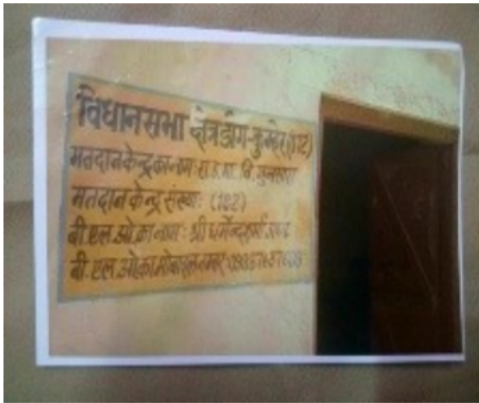 विधानसभा क्षेत्र डीग-कुम्हेर (112)
मतदान केन्द्र का नाम: रा.उ.मा.वि.
मतदान केन्द्र संख्या: (182)
बी.एल.ओ. का नाम: श्री धर्मेन्द्र शर्मा
बी.एल.ओ. का मोबाइल नम्बर